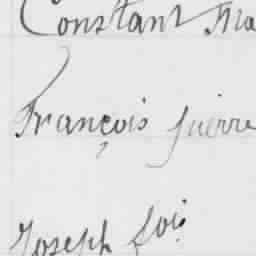 Constant Ma
François Pierre
Joseph Loi